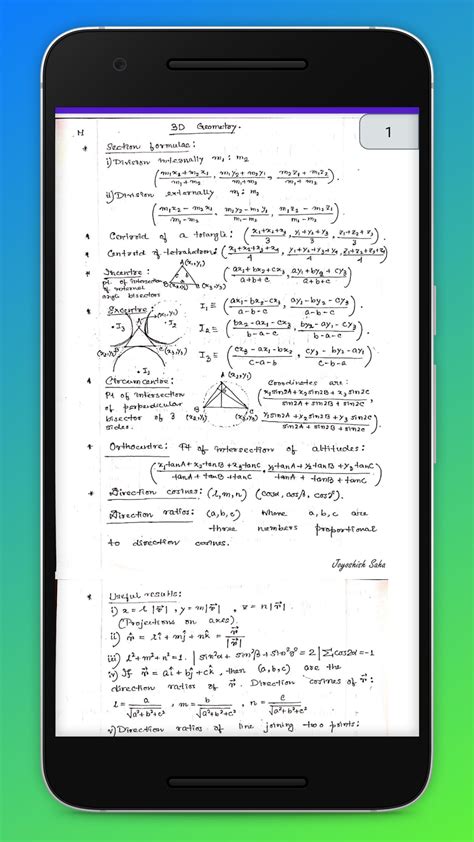 1
H 3D Geometry.
* Section formulae:
i) Division internally m₁ : m₂
(m₁x₂+m₂x₁/m₁+m₂, m₁y₂+m₂y₁/m₁+m₂, m₁z₂+m₂z₁/m₁+m₂).
ii) Division externally m₁ : m₂
(m₁x₂-m₂x₁/m₁-m₂, m₁y₂-m₂y₁/m₁-m₂, m₁z₂-m₂z₁/m₁-m₂).
* Centroid of a triangle: (x₁+x₂+x₃/3, y₁+y₂+y₃/3, z₁+z₂+z₃/3)
* Centroid of tetrahedron: (x₁+x₂+x₃+x₄/4, y₁+y₂+y₃+y₄/4, z₁+z₂+z₃+z₄/4)
A(x₁,y₁)
* Incentre: (ax₁+bx₂+cx₃/a+b+c, ay₁+by₂+cy₃/a+b+c)
pt. of intersection
of internal B(x₂,y₂) C(x₃,y₃)
angle bisectors
* Excentre: I₁ ≡ (ax₁-bx₂-cx₃/a-b-c, ay₁-by₂-cy₃/a-b-c)
A (x₁,y₁)
I₃ I₂ I₂ ≡
(x₂,y₂)B C(x₃,y₃)
I₃ ≡
* Circumcentre: A (x₁,y₁) Coordinates are:
Pt of intersection (x₁sin2A+x₂sin2B+x₃sin2C/sin2A+sin2B+sin2C,
of perpendicular
bisector of 3 (x₂,y₂) B C (x₃,y₃) y₁sin2A+y₂sin2B+y₃sin2C/sin2A+sin2B+sin2C)
sides.
* Orthocentre: Pt of intersection of altitudes:
(x₁tanA+x₂tanB+x₃tanC/tanA+tanB+tanC, y₁tanA+y₂tanB+y₃tanC/tanA+tanB+tanC)
* Direction cosines: (l,m,n) (cosα, cosβ, cosγ).
Direction ratios: (a,b,c) where a,b,c are
three numbers proportional
to direction cosines.
Joyoshish Saha
* Useful results:
i) x = l|r⃗|, y = m|r⃗|, z = n|r⃗|
(Projections on axes).
ii) r̂ = lî + mĵ + nk̂ = r⃗/|r⃗|
iii) l²+m²+n²=1. | sin²α + sin²β + sin²γ = 2 | ∑cos2α=-1
iv) If r⃗ = aî + bĵ + ck̂, then (a,b,c) are the
direction ratios of r⃗. Direction cosines of r⃗:
l = a/√a²+b²+c², m = b/√a²+b²+c², n = c/√a²+b²+c²
v) Direction ratios of line joining two points: